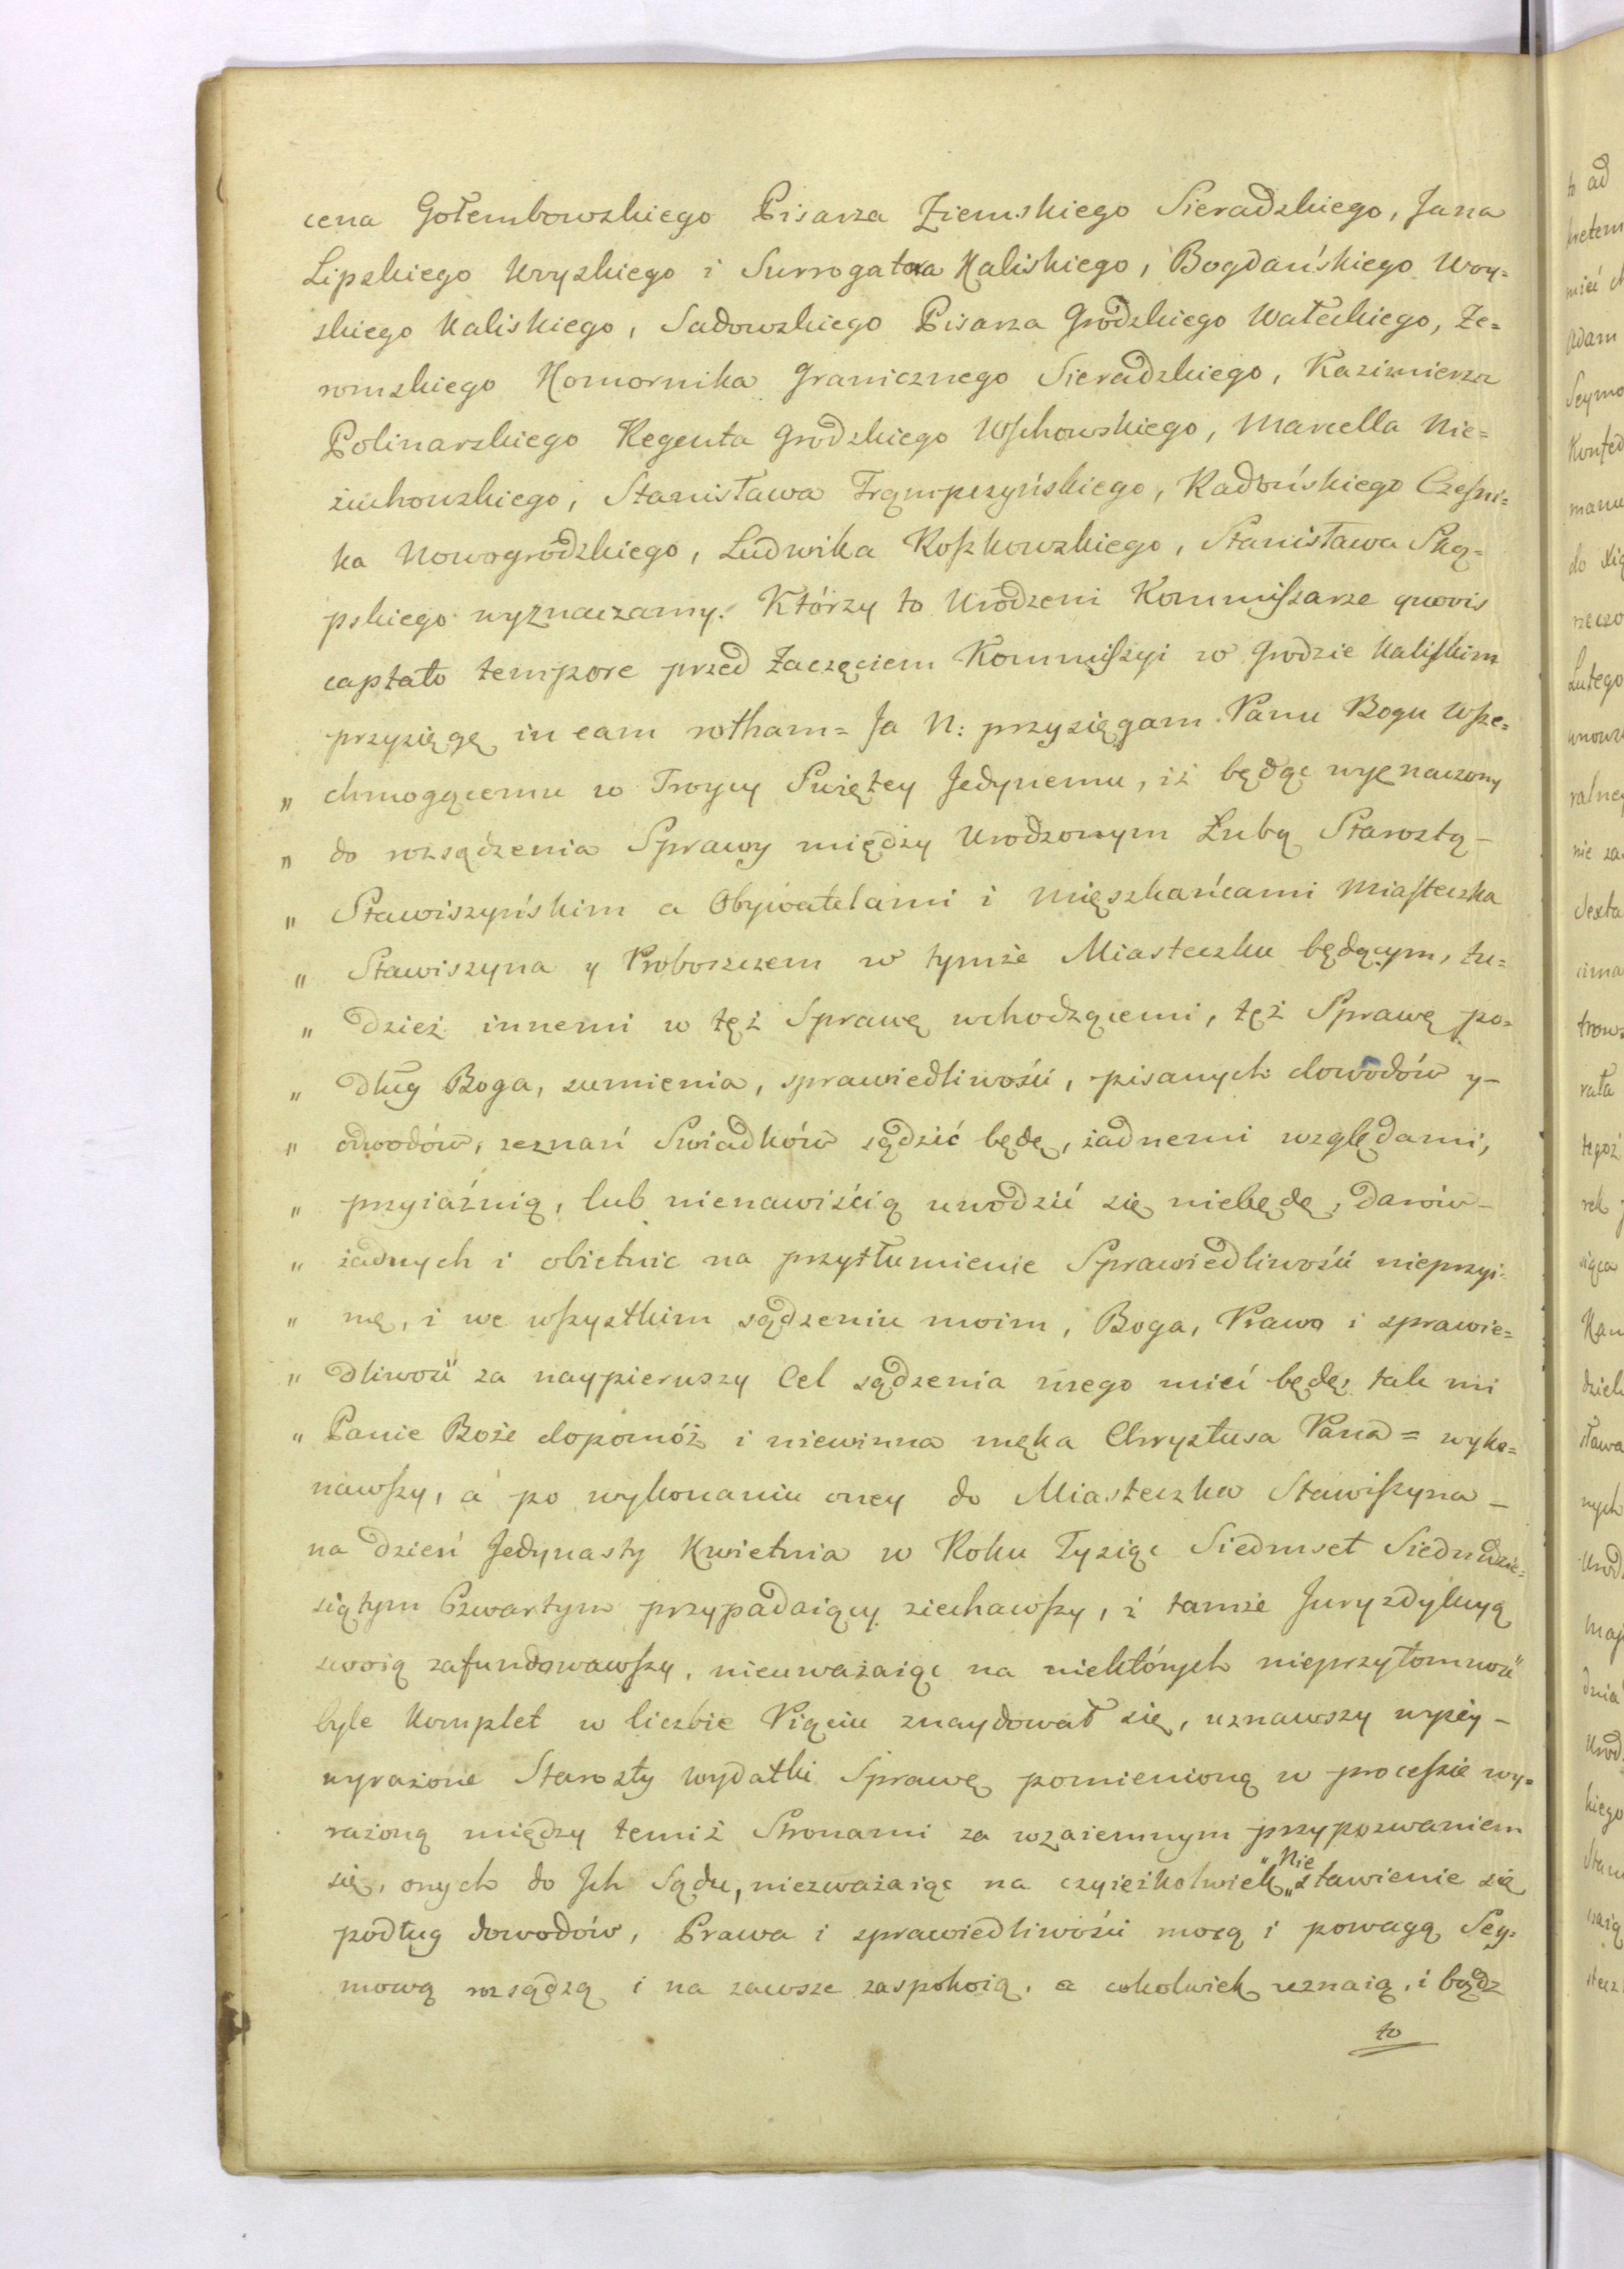 cena Gołembowskiego Pisarza Ziemskiego Sieradzkiego, Jana
Lipskiego Woyskiego i Surrogatora Kaliskiego, Bogdańskiego Woy=
skiego Kaliskiego, Sadowskiego Pisarza Grodzkiego Wałeckiego, Że=
romskiego Komornika Granicznego Sieradzkiego, Kazimierza
Polinarskiego Regenta Grodzkiego Wschowskiego, Marcella Nie=
żuchowskiego, Stanisława Trąmpczyńskiego, Radońskiego Czesni=
ka Nowogrodzkiego, Ludwika Koszkowskiego, Stanisława Ską=
pskiego wyznaczamy. Którzy to Urodzeni Kommissarze quovis
captato tempore przed zaczęciem Kommissyi w Grodzie Kaliskim
przysięgę in eam rotham= Ja N: przysięgam Panu Bogu Wsze=
„ chmogącemu w Troycy Swiętey Jedynemu, iż będąc wyznaczony
„ do rozsądzenia Sprawy między Urodzonym Łubą Starostą -
„ Stawiszyńskim a Obywatelami i Mięszkańcami Miasteczka
„ Stawiszyna y Proboszczem w tymże Miasteczku będącym, tu=
„ dzież innemi w tęż Sprawę wchodzącemi, tęż Sprawę po=
„ dług Boga, sumienia, sprawiedliwości, pisanych dowodów y -
„ odwodów, zeznań Swiadków sądzić będę, żadnemi względami,
„ przyiaźnią, lub nienawiścią uwodzić się niebędę, darów -
„ żadnych i obietnic na przytłumienie Sprawiedliwości nieprzyi=
„ mę, i we wszystkim sądzeniu moim, Boga, Prawo i sprawie=
„ dliwość za naypierwszy Cel sądzenia mego mieć będę, tak mi
„ Panie Boże dopomóż i niewinna męka Chrystusa Pana = wyko=
nawszy, a po wykonaniu oney do Miasteczka Stawiszyna -
na dzień Jedynasty Kwietnia w Roku Tysiąc Siedmset Siedmdzie=
siątym Czwartym przypadaiący ziechawszy, i tamże Juryzdykcyą
swoią zafundowawszy, nieuważaiąc na niektórych nieprzytomność
byle Komplet w liczbie Pięciu znaydował się, uznawszy wyżey -
wyrażone Starosty wydatki Sprawę pomienioną w processie wy=
rażoną między temiż Stronami za wzaiemnym przypozwaniem
się, onych do Jch Sądu, niezważaiąc na czyieżkolwiek „Nie„ stawienie się
podług dowodów, Prawa i sprawiedliwości mocą i powagą Sey=
mową rozsądzą i na zawsze zaspokoią, a cokolwiek uznaią, i bądz
to